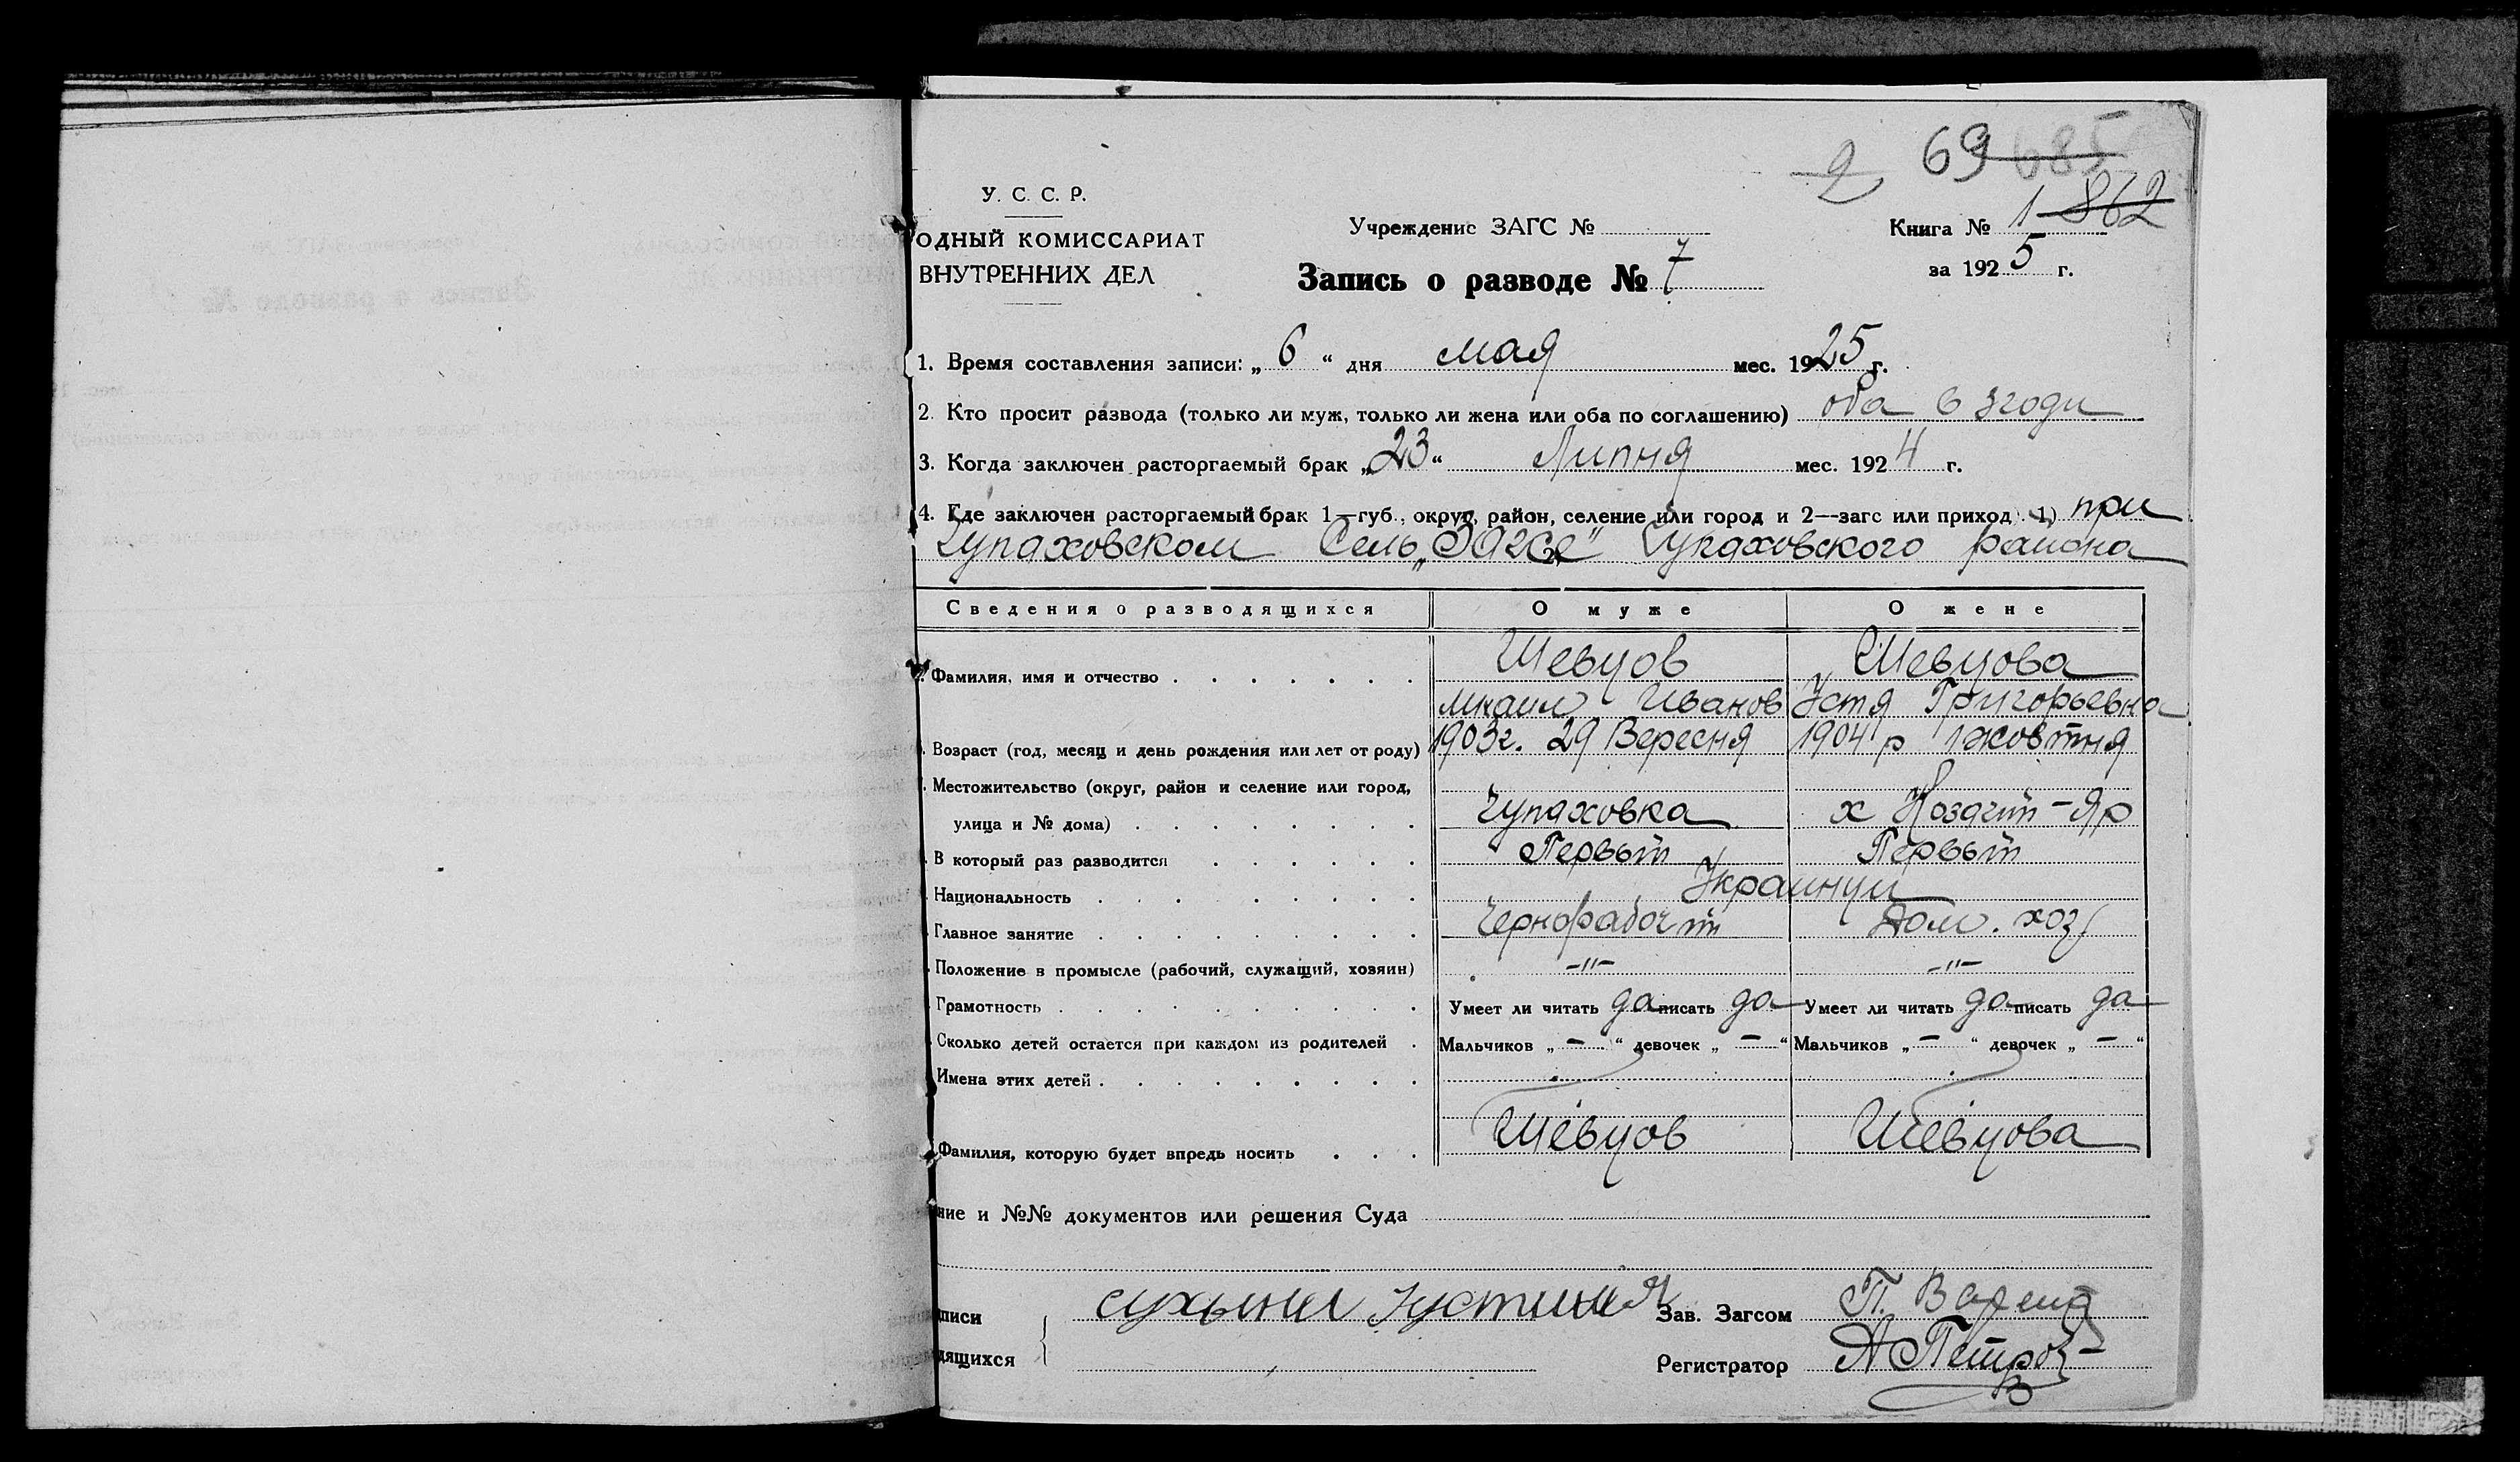 2 69 685
У. С. С. Р.
ОДНЫЙ КОМИССАРИАТ
ВНУТРЕННИХ ДЕЛ
Учреждение ЗАГС №
Книга № 1 862
за 1925 г.
Запись о разводе № 7
1. Время составления записи: „ 6 “ дня мая мес. 1925 г.
2. Кто просит развода (только ли муж, только ли жена или оба по соглашению) оба в згоди
3. Когда заключен расторгаемый брак „23“ Липня мес. 1924 г.
4. Где заключен расторгаемый брак 1—губ., округ, район, селение или город и 2—загс или приход). 1) при
Чупаховском Сель„Загсе“ Чупаховского района
Сведения о разводящихся О муже О жене
Фамилия, имя и отчество Шевцов Шевцова
Михаил Иванов Устя Григорьевна
Возраст (год, месяц и день рождения или лет от роду) 1903г. 29 Вересня 1904 р 1 жовтня
Местожительство (округ, район и селение или город,
улица и № дома) Чупаховка х Козачий-Яр
В который раз разводится Первый Первый
Национальность Украинци
Главное занятие Чернорабочий Дом. хоз
Положение в промысле (рабочий, служащий, хозяин) -"- -"-
Грамотность Умеет ли читать да писать да Умеет ли читать да писать да
Сколько детей остается при каждом из родителей Мальчиков „ — “ девочек „ — “ Мальчиков „ — “ девочек „ — “
Имена этих детей
Фамилия, которую будет впредь носить Шевцов Шевцова
ние и №№ документов или решения Суда
писи Зав. Загсом П.
дящихся Регистратор А Петров